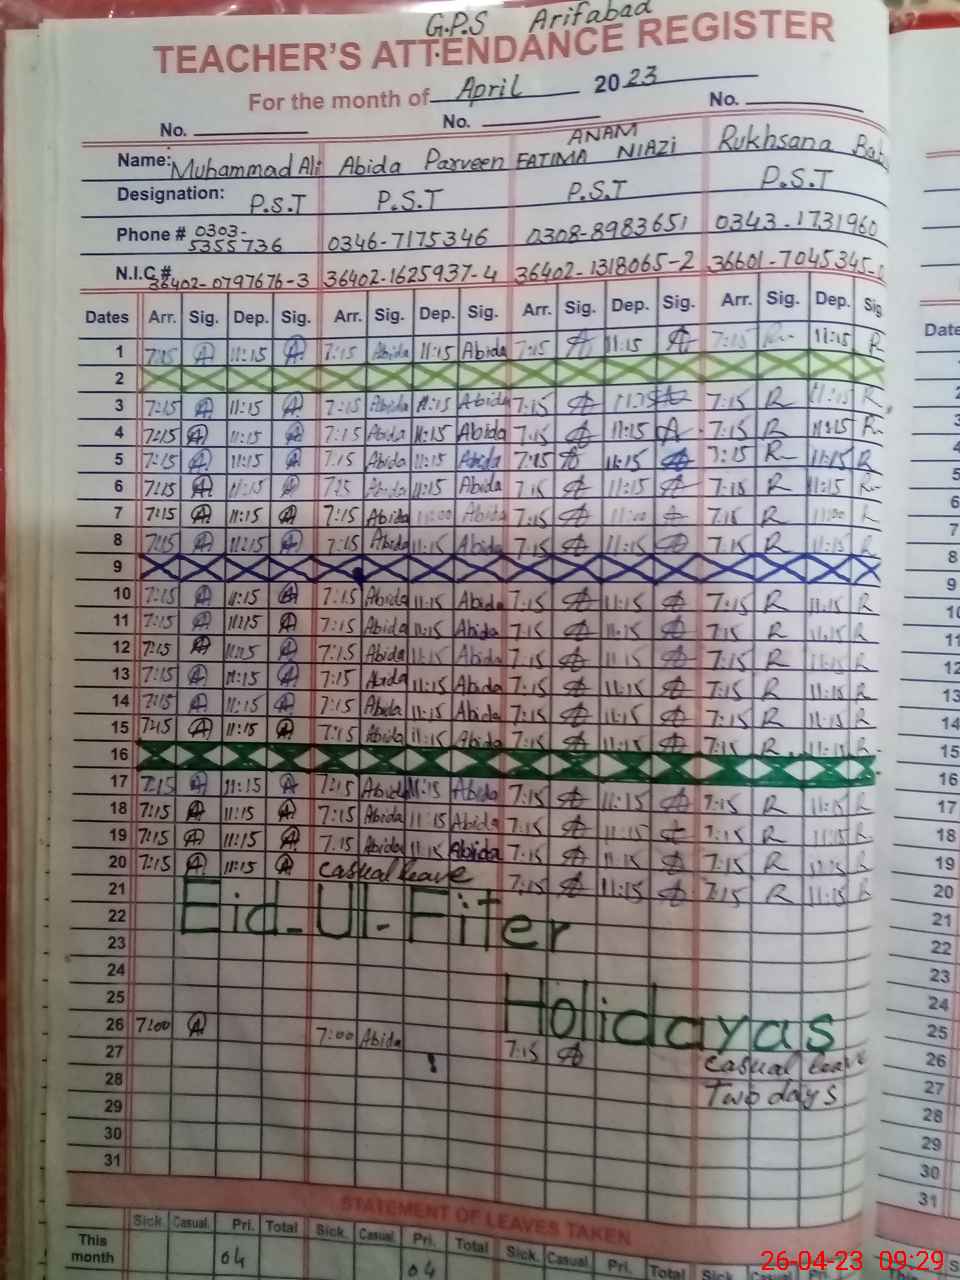 G.P.S Arifabad
TEACHER'S ATTENDANCE REGISTER
For the month of April 2023
No. No. No.
Name: Muhammad Ali Abida Parveen ANAM FATIMA NIAZI Rukhsana
Designation: P.S.T P.S.T P.S.T P.S.T
Phone # 0303-5355736 0346-7175346 0308-8983651 0343-1731960
N.I.C.# 36402-0797676-3 36402-1625937-4 36402-1318065-2 36601-7045345-
Dates Arr. Sig. Dep. Sig. Arr. Sig. Dep. Sig. Arr. Sig. Dep. Sig. Arr. Sig. Dep. Sig
1 7:15 A 11:15 A 7:15 Abida 11:15 Abida 7:15 A 11:15 A 7:15 R 11:15 R
2
3 7:15 A 11:15 A 7:15 Abida 11:15 Abida 7:15 A 11:15 A 7:15 R 11:15 R
4 7:15 A 11:15 A 7:15 Abida 11:15 Abida 7:15 A 11:15 A 7:15 R 11:15 R
5 7:15 A 11:15 A 7:15 Abida 11:15 Abida 7:15 A 11:15 A 7:15 R 11:15 R
6 7:15 A 11:15 A 7:15 Abida 11:15 Abida 7:15 A 11:15 A 7:15 R 11:15 R
7 7:15 A 11:15 A 7:15 Abida 11:00 Abida 7:15 A 11:00 A 7:15 R 11:00 R
8 7:15 A 11:15 A 7:15 Abida 11:15 Abida 7:15 A 11:15 A 7:15 R 11:15 R
9
10 7:15 A 11:15 A 7:15 Abida 11:15 Abida 7:15 A 11:15 A 7:15 R 11:15 R
11 7:15 A 11:15 A 7:15 Abida 11:15 Abida 7:15 A 11:15 A 7:15 R 11:15 R
12 7:15 A 11:15 A 7:15 Abida 11:15 Abida 7:15 A 11:15 A 7:15 R 11:15 R
13 7:15 A 11:15 A 7:15 Abida 11:15 Abida 7:15 A 11:15 A 7:15 R 11:15 R
14 7:15 A 11:15 A 7:15 Abida 11:15 Abida 7:15 A 11:15 A 7:15 R 11:15 R
15 7:15 A 11:15 A 7:15 Abida 11:15 Abida 7:15 A 11:15 A 7:15 R 11:15 R
16
17 7:15 A 11:15 A 7:15 Abida 11:15 Abida 7:15 A 11:15 A 7:15 R 11:15 R
18 7:15 A 11:15 A 7:15 Abida 11:15 Abida 7:15 A 11:15 A 7:15 R 11:15 R
19 7:15 A 11:15 A 7:15 Abida 11:15 Abida 7:15 A 11:15 A 7:15 R 11:15 R
20 7:15 A 11:15 A casual leave 7:15 A 11:15 A 7:15 R 11:15 R
21
22 Eid-Ul-Fiter
23
24
25 Holidayas
26 7:00 A 7:00 Abida 7:15 A casual leave
27 Two days
28
29
30
31
STATEMENT OF LEAVES TAKEN
Sick. Casual. Pri. Total Sick. Casual. Pri. Total Sick. Casual. Pri. Total Sick. Casual.
This month 04 04
Date
2
3
4
5
6
7
8
9
10
11
12
13
14
15
16
17
18
19
20
21
22
23
24
25
26
27
28
29
30
31
26-04-23 09:29